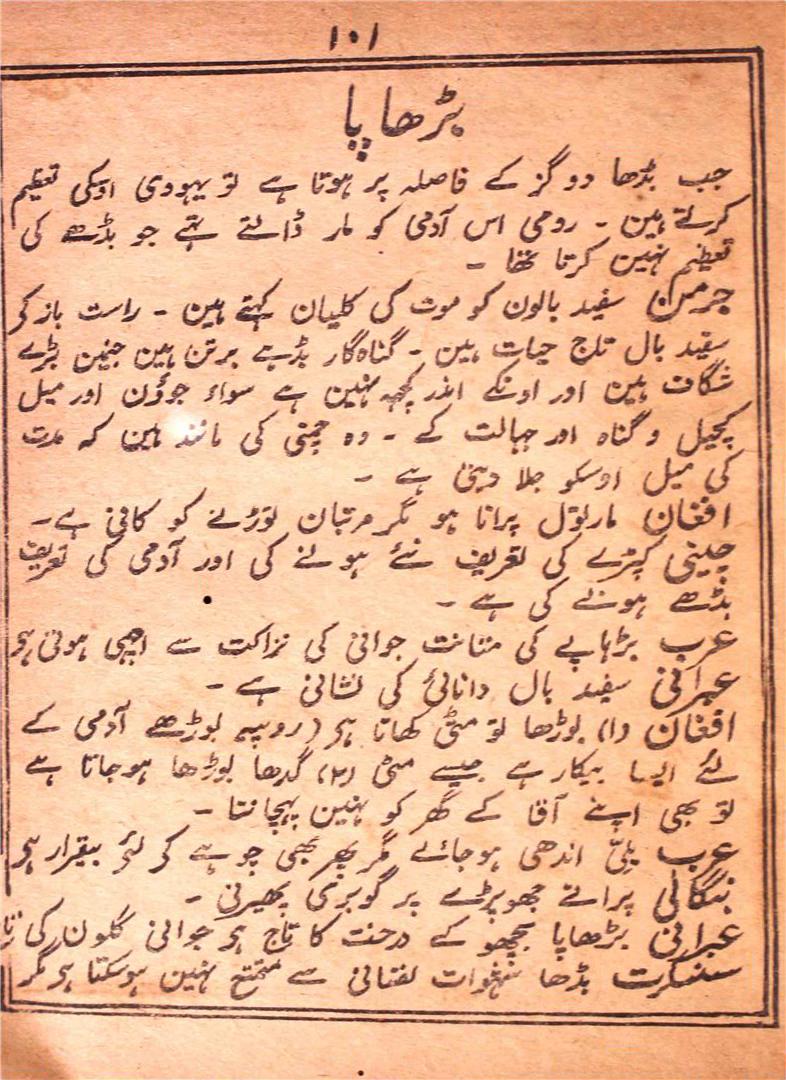 ۱۰۱
بڑھاپا
جب بڈھا دو گز کے فاصلہ پر ہوتا ہے تو یہودی اوسکی تعظیم
کرتے ہین ۔ رومی اس آدمی کو مار ڈالتے تہے جو بڈھے کی
تعظیم نہین کرتا تھا ۔
جرمن سفید بالون کو موت کی کلیان کہتے ہین ۔ راست باز کی
سفید بال تاج حیات ہین ۔ گناہ گار بڈہے برتن ہین جنمین بڑے
شگاف ہین اور اونکے اندر کچہہ نہین ہے سواء جوؤن اور میل
کچیل و گناہ اور جہالت کے ۔ وہ چمنی کی مانند ہین کہ مدت
کی میل اوسکو جلا دیتی ہے ۔
افغان مارتول پرانا ہو مگر مرتبان توڑنے کو کافی ہے ۔
چینی کپڑے کی تعریف نئے ہونے کی اور آدمی کی تعریف
بڈھے ہونے کی ہے ۔
عرب بڑہاپے کی متانت جوانی کی نزاکت سے اچہی ہوتی ہی
عبرانی سفید بال دانائی کی نشانی ہے ۔
افغان (۱) بوڑھا تو مٹی کھاتا ہی (روپیہ بوڑھے آدمی کے
لئے ایسا بیکار ہے جیسے مٹی (۲) گدھا بوڑھا ہوجاتا ہے
تو بھی اپنے آقا کے گھر کو نہین پہچانتا ۔
عرب بلّی اندھی ہوجائے مگر پھر بھی چوہے کے لئے بیقرار ہی
بنگالی پرانے جھوپڑے پر گوبری پھیرنی ۔
عبرانی بڑھاپا سمجھو کے درخت کا تاج ہی جوانی گلون کی
سنسکرت بڈھا شہوات نفسانی سے متمتع نہین ہوسکتا ہی مگر